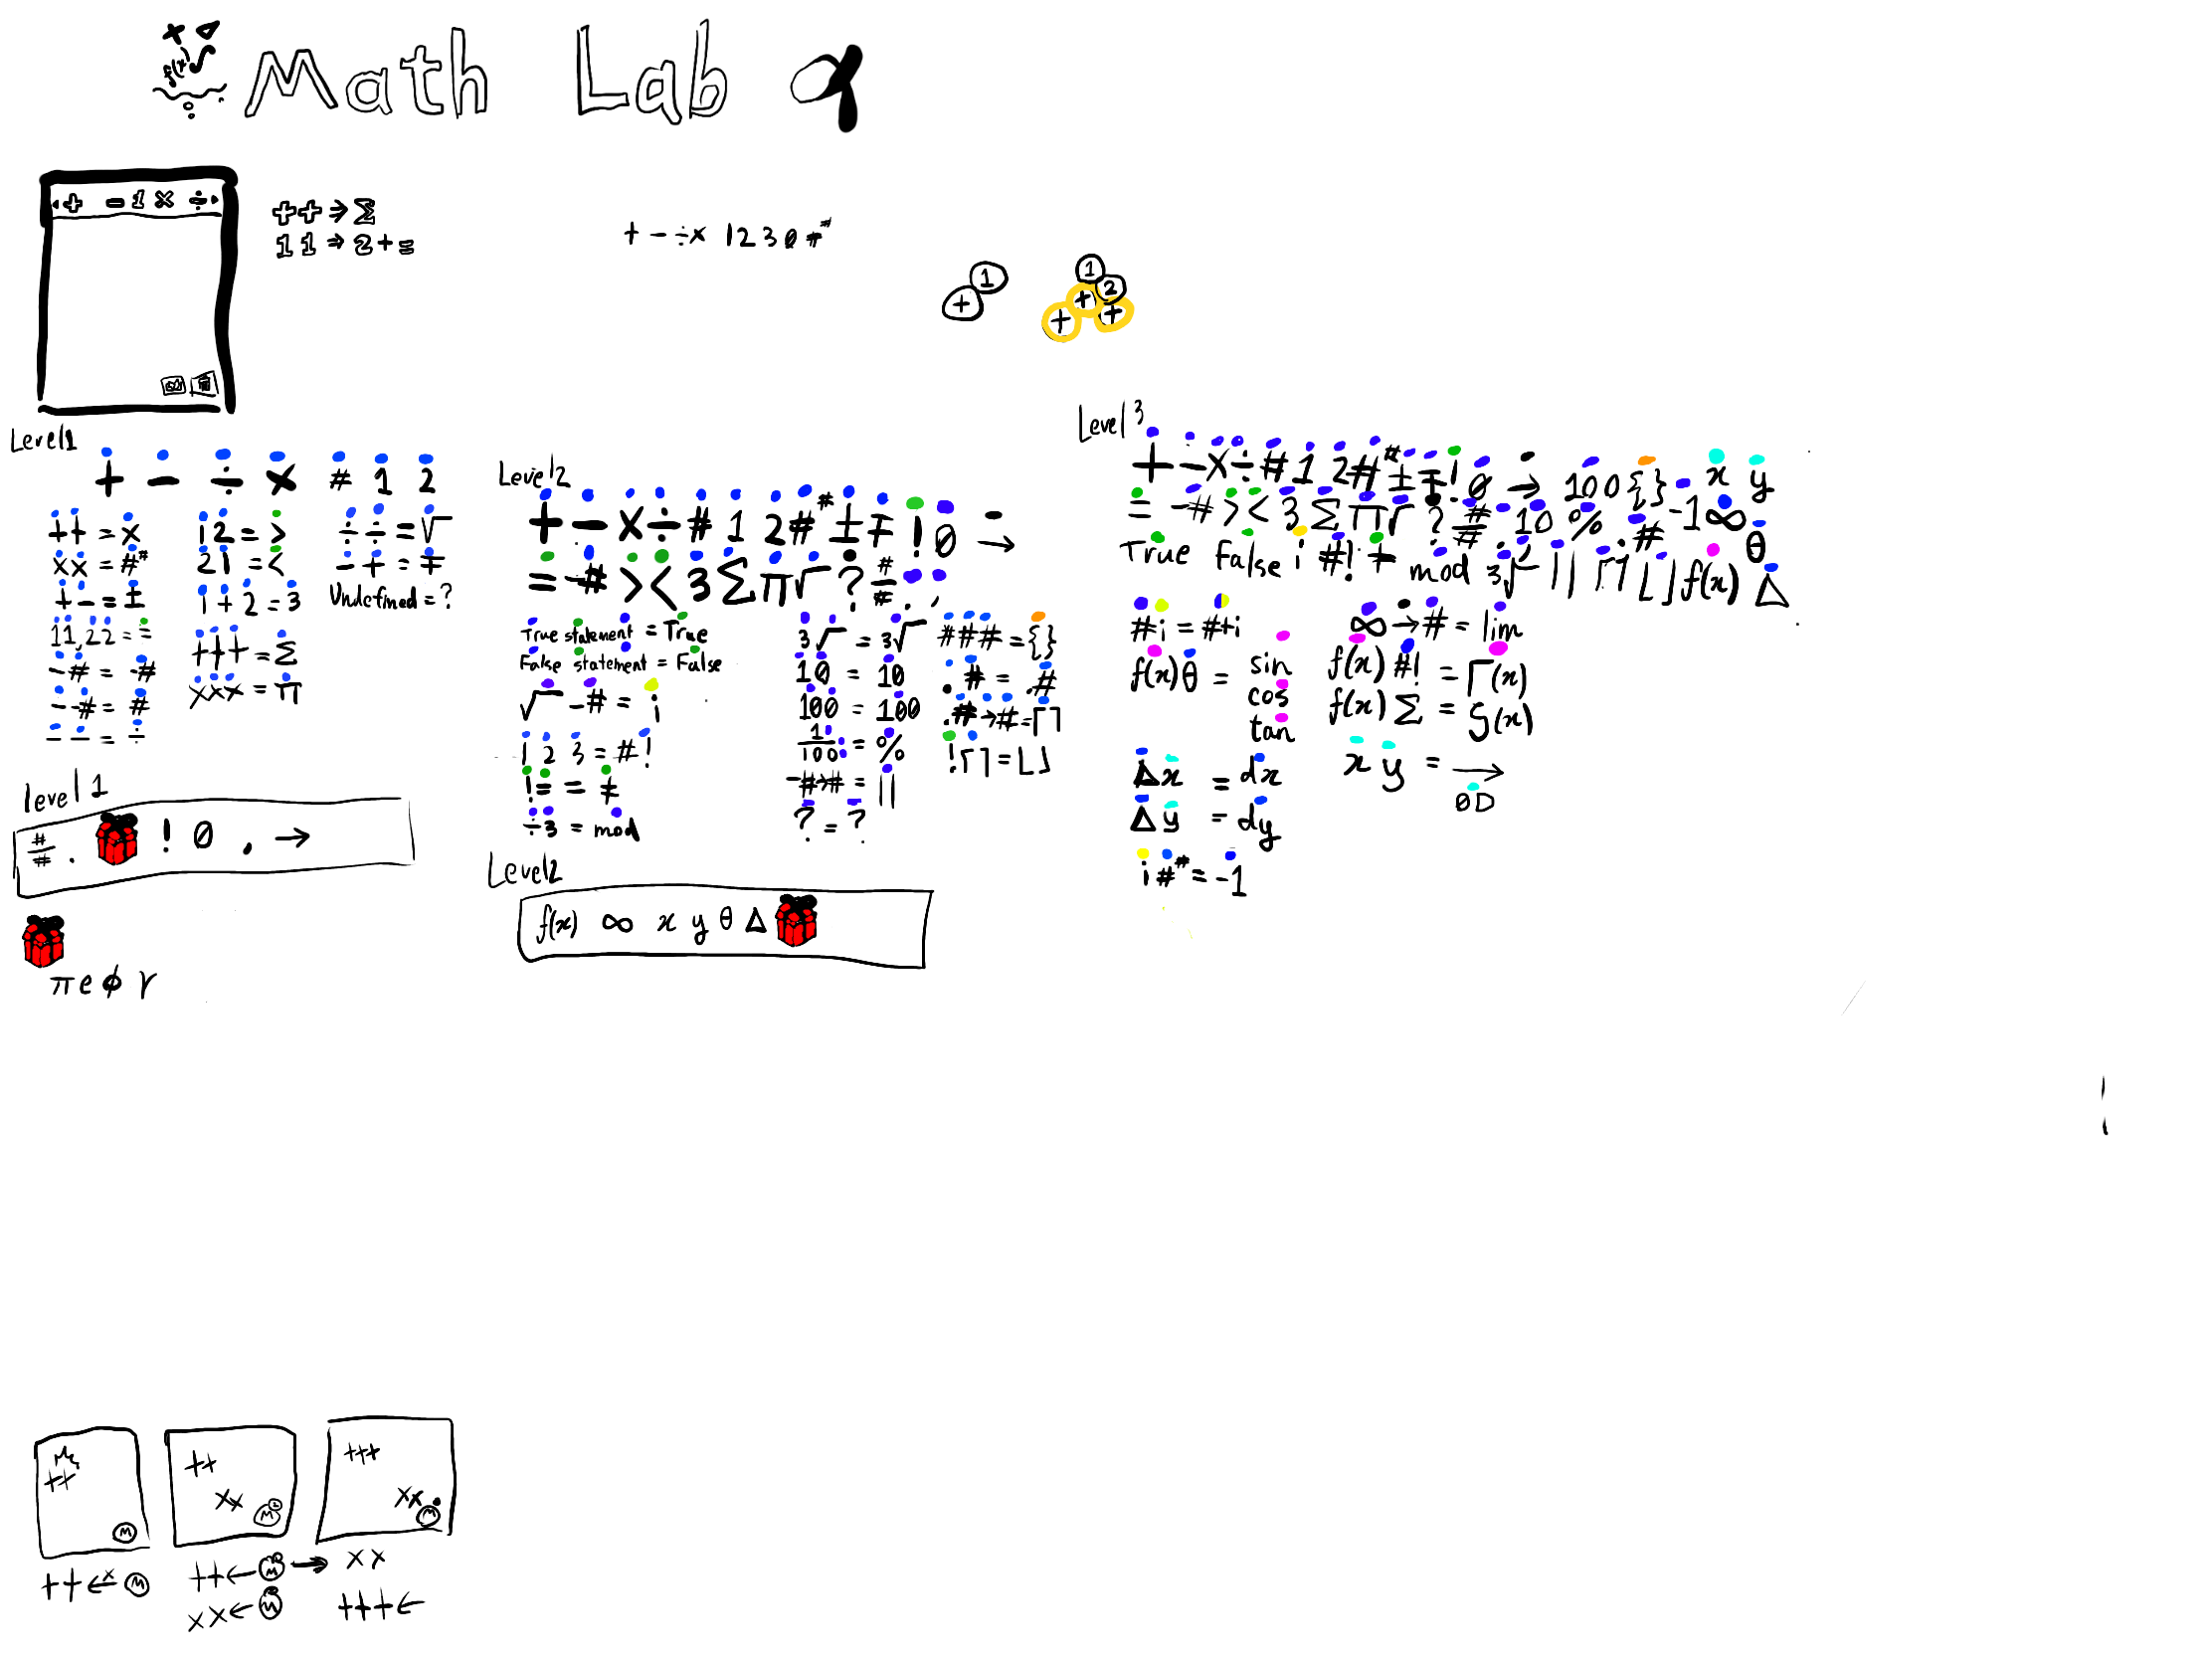 Math Lab α
+ - 1 × ÷
++ ⇒ Σ
11 ⇒ 2 + =
+ - ÷ × 1 2 3 0 #^#
1
+
1
2
+ + +
Level 1
+ - ÷ × # 1 2
++ = ×
×× = #^#
+- = ±
11,22 = =
-# = -#
--# = #
-- = ÷
12 = >
21 = <
1+2 = 3
+++ = Σ
××× = π
÷÷ = √
-+ = ∓
Undefined = ?
level 1
#/# . ! 0 , →
π e ϕ γ
Level 2
+ - × ÷ # 1 2 #^# ± ∓ ! 0 →
= -# > < 3 Σ π √ ? #/# . ,
True statement = True
False statement = False
√ -# = i
1 2 3 = #!
!= = ≠
÷3 = mod
3√ = 3√
10 = 10
100 = 100
1/100 = %
-#→# = ||
? = ?
### = {}
. # = .#
.#→# = ⌈⌉
!⌈⌉ = ⌊⌋
Level2
f(x) ∞ x y θ Δ
Level 3
+ - × ÷ # 1 2 #^# ± ∓ ! 0 → 100 {} -1 x y
= -# > < 3 Σ π √ ? #/# . 10 % .# ∞ θ
True False i #! ≠ mod 3√ || ⌈⌉ ⌊⌋ f(x) Δ
#i = #+i
f(x) θ = sin
cos
tan
Δx = dx
Δy = dy
i #^# = -1
∞→# = lim
f(x) #! = Γ(x)
f(x) Σ = ζ(x)
x y = →
0D
++
M
++
××
M
+++
××
M
++ ←× M
++ ← M → ××
×× ← M
+++ ←